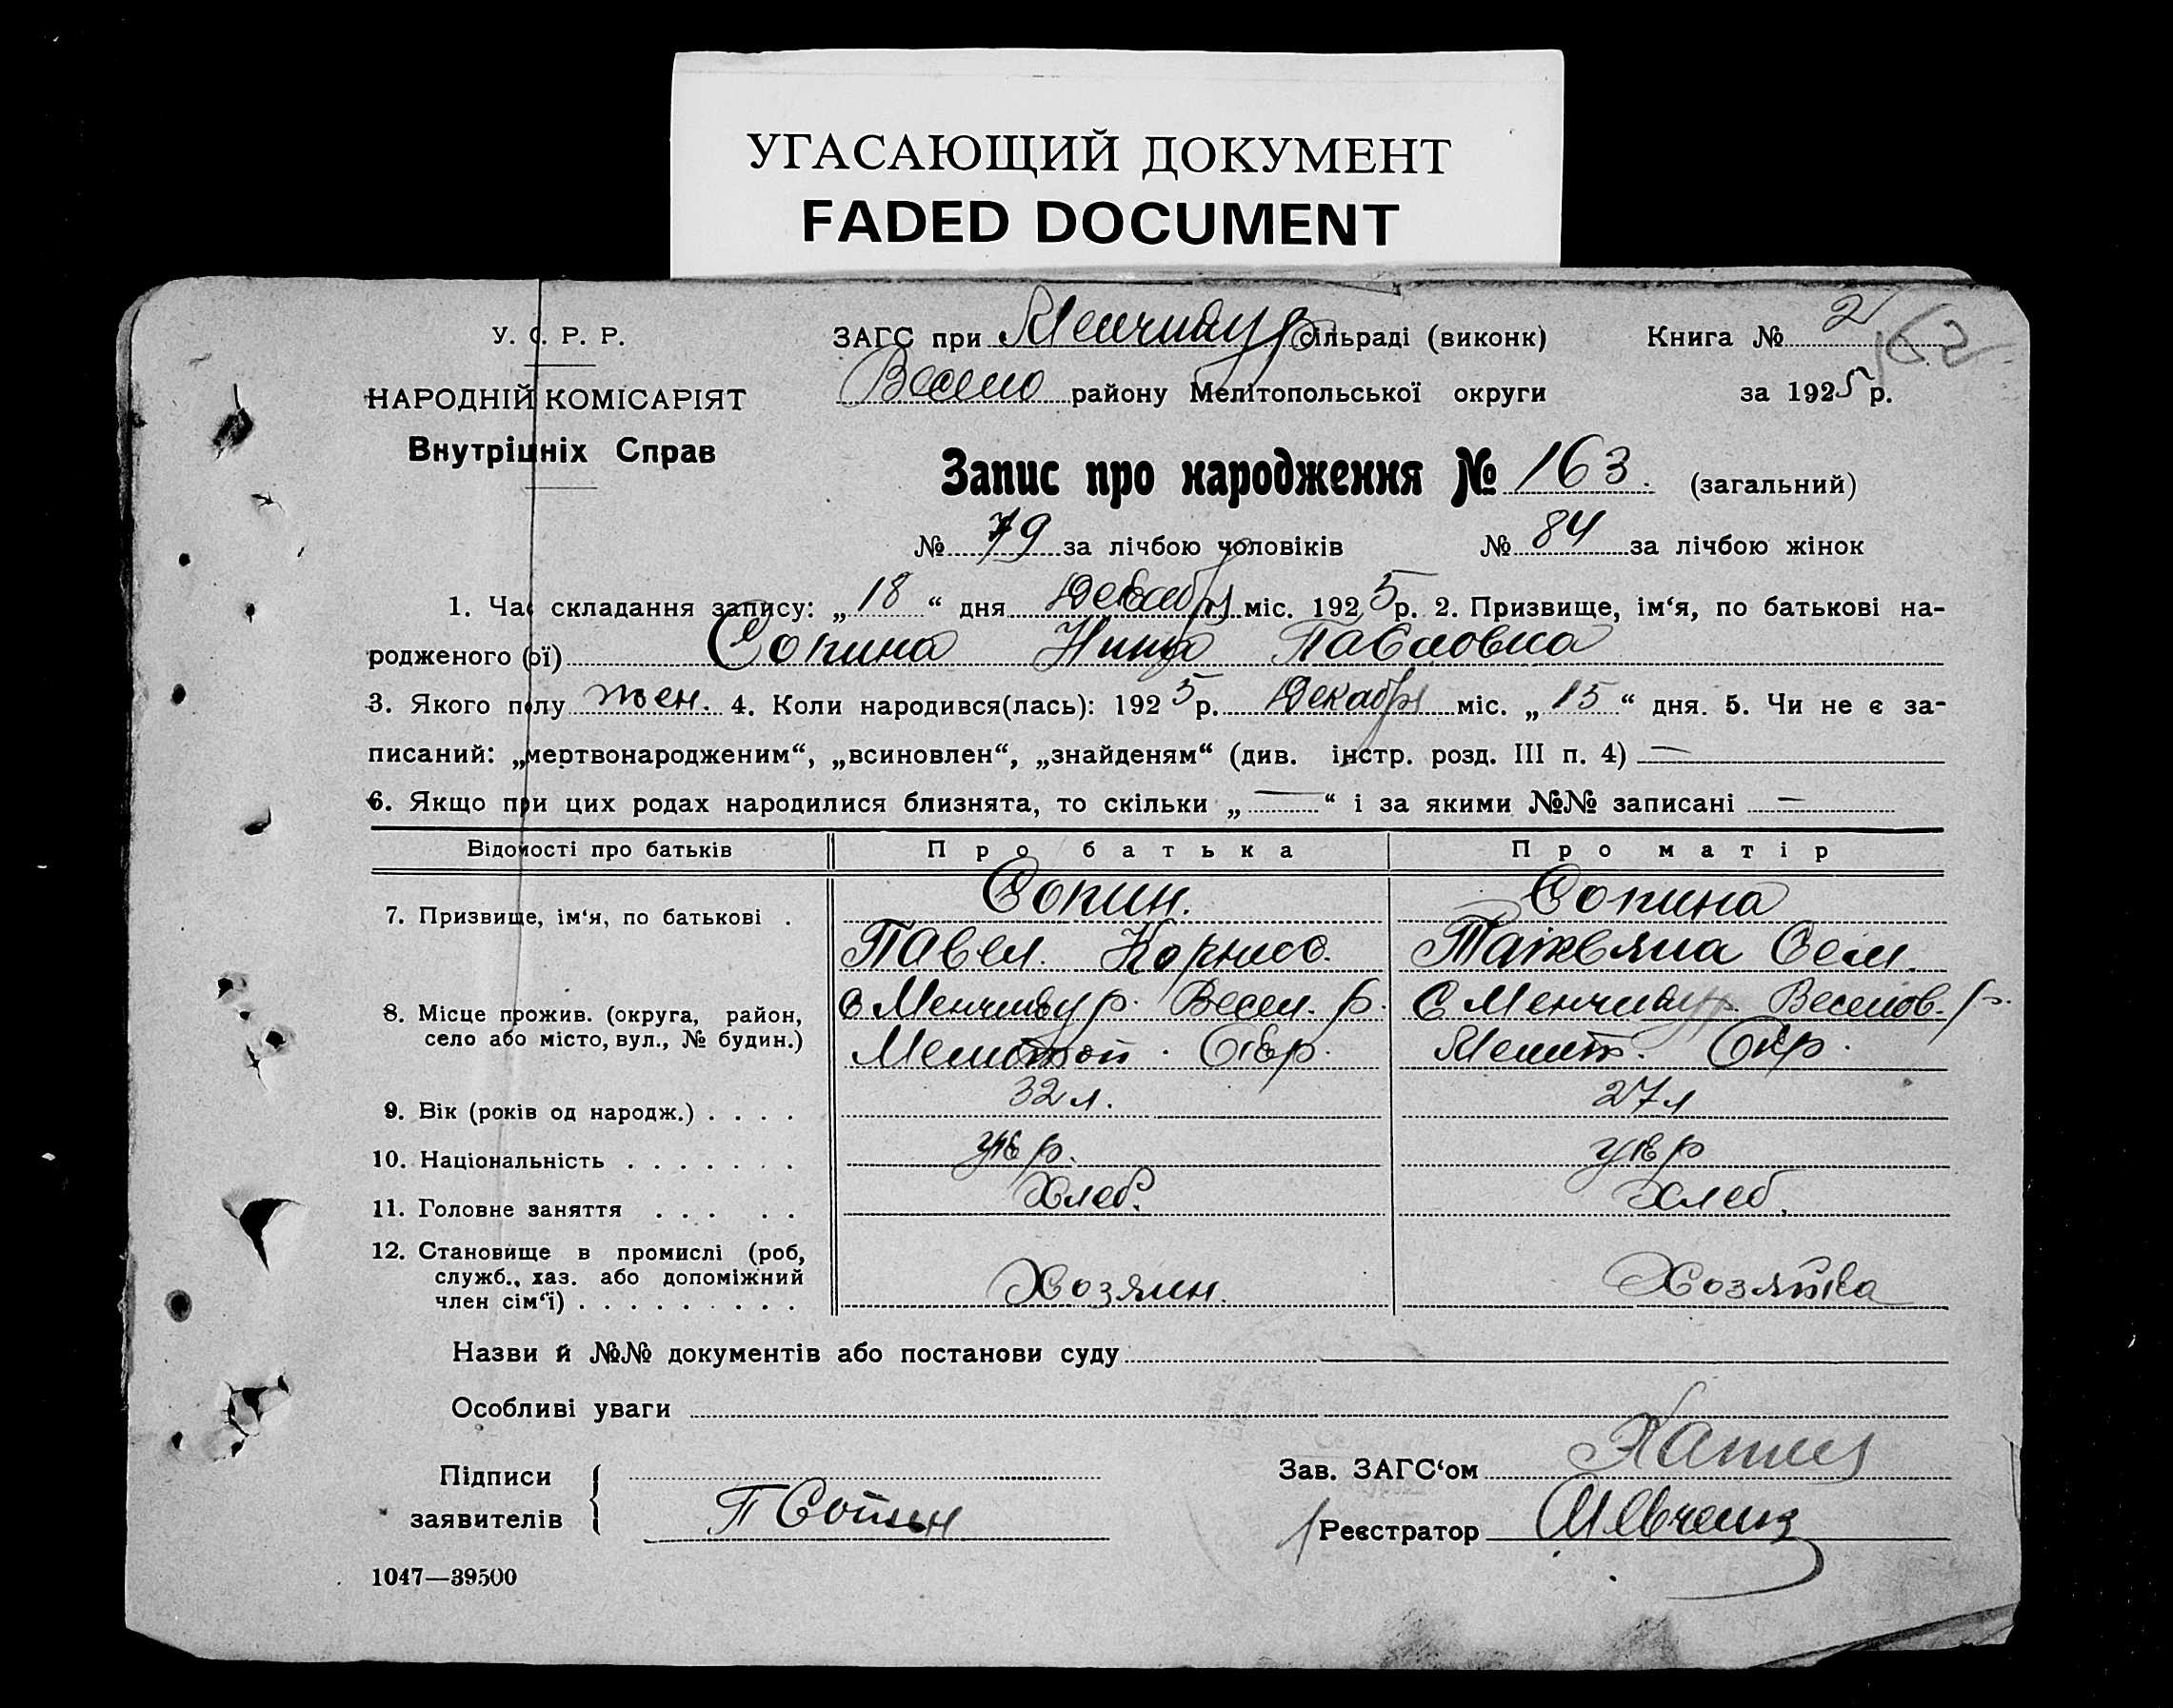 УГАСАЮЩИЙ ДОКУМЕНТ
FADED DOCUMENT
У. С. Р. Р.
НАРОДНІЙ КОМІСАРІЯТ
Внутрішніх Справ
ЗАГС при Менчикур сільраді (виконк) Книга № 2
162
Весело району Мелітопольської округи за 1925 р.
Запис про народження № 163. (загальний)
№ 79 за лічбою чоловіків № 84 за лічбою жінок
1. Час складання запису: „18“ дня Декабря міс. 1925 р. 2. Призвище, ім‘я, по батькові на-
родженого (ої) Сопина Нина Павловна
3. Якого полу жен. 4. Коли народився(лась): 1925 р. Декабря міс. „15“ дня. 5. Чи не є за-
писаний: „мертвонародженим“, „всиновлен“, „знайденям“ (див. інстр. розд. III п. 4) —
6. Якщо при цих родах народилися близнята, то скільки „—“ і за якими №№ записані —
Відомості про батьків Про батька Про матір
7. Призвище, ім‘я, по батькові . Сопин. Сопина
Павел. Корнее. Татьяна Сем.
8. Місце прожив. (округа, район, село або місто, вул., № будин.) с Менчикур. Весел. р. С Менчикур Веселов. р.
Мелитоп. Окр. Мелит. Окр.
9. Вік (років од народж.) . . . . 32 л. 27 л
10. Національність . . . . . . . укр. укр
11. Головне заняття . . . . . Хлеб. Хлеб.
12. Становище в промислі (роб, служб., хаз. або допоміжний член сім‘ї) . . . . . . . . . Хозяин. Хозяйка
Назви й №№ документів або постанови суду
Особливі уваги
Підписи заявителів П Сопин
Зав. ЗАГС‘ом
Реєстратор
1047—39500